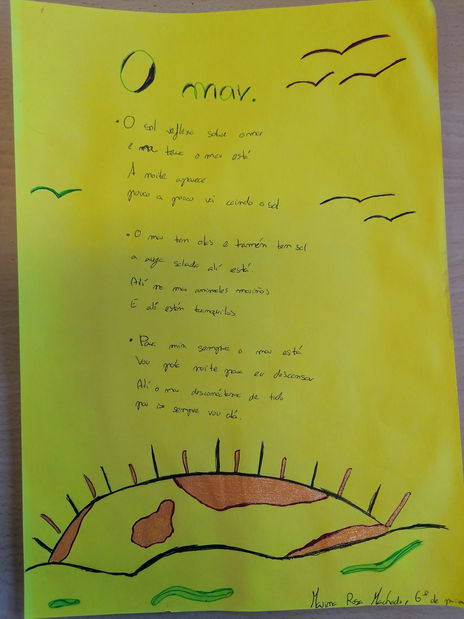 O mar.
O sol reflexa sobre o mar
e na terra o mar está
A noite aparece
pouco a pouco vai caindo o sol
O mar ten olas e tamén ten sol
a auga salada alí está
Alí no mar animales mariños
E alí están tranquilos
Para min sempre o mar está
Vou pola noite para eu descansar
Alí o mar desconéctame de todo
por iso sempre vou alá.
Rosa Machado, 6º de